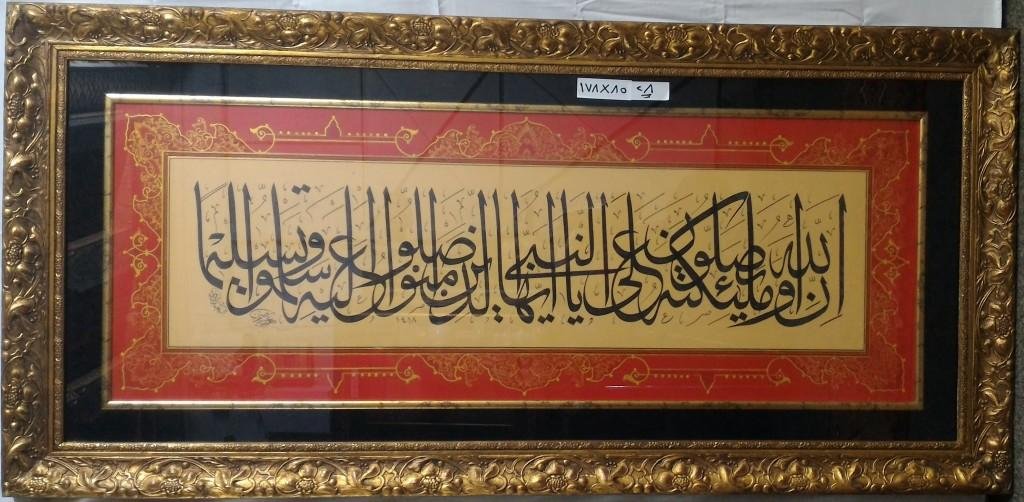 ١٧٨X٨٥
إن الله وملئكته يصلون على النبي يا أيها الذين امنوا صلوا عليه وسلموا تسليما
١٤١٨